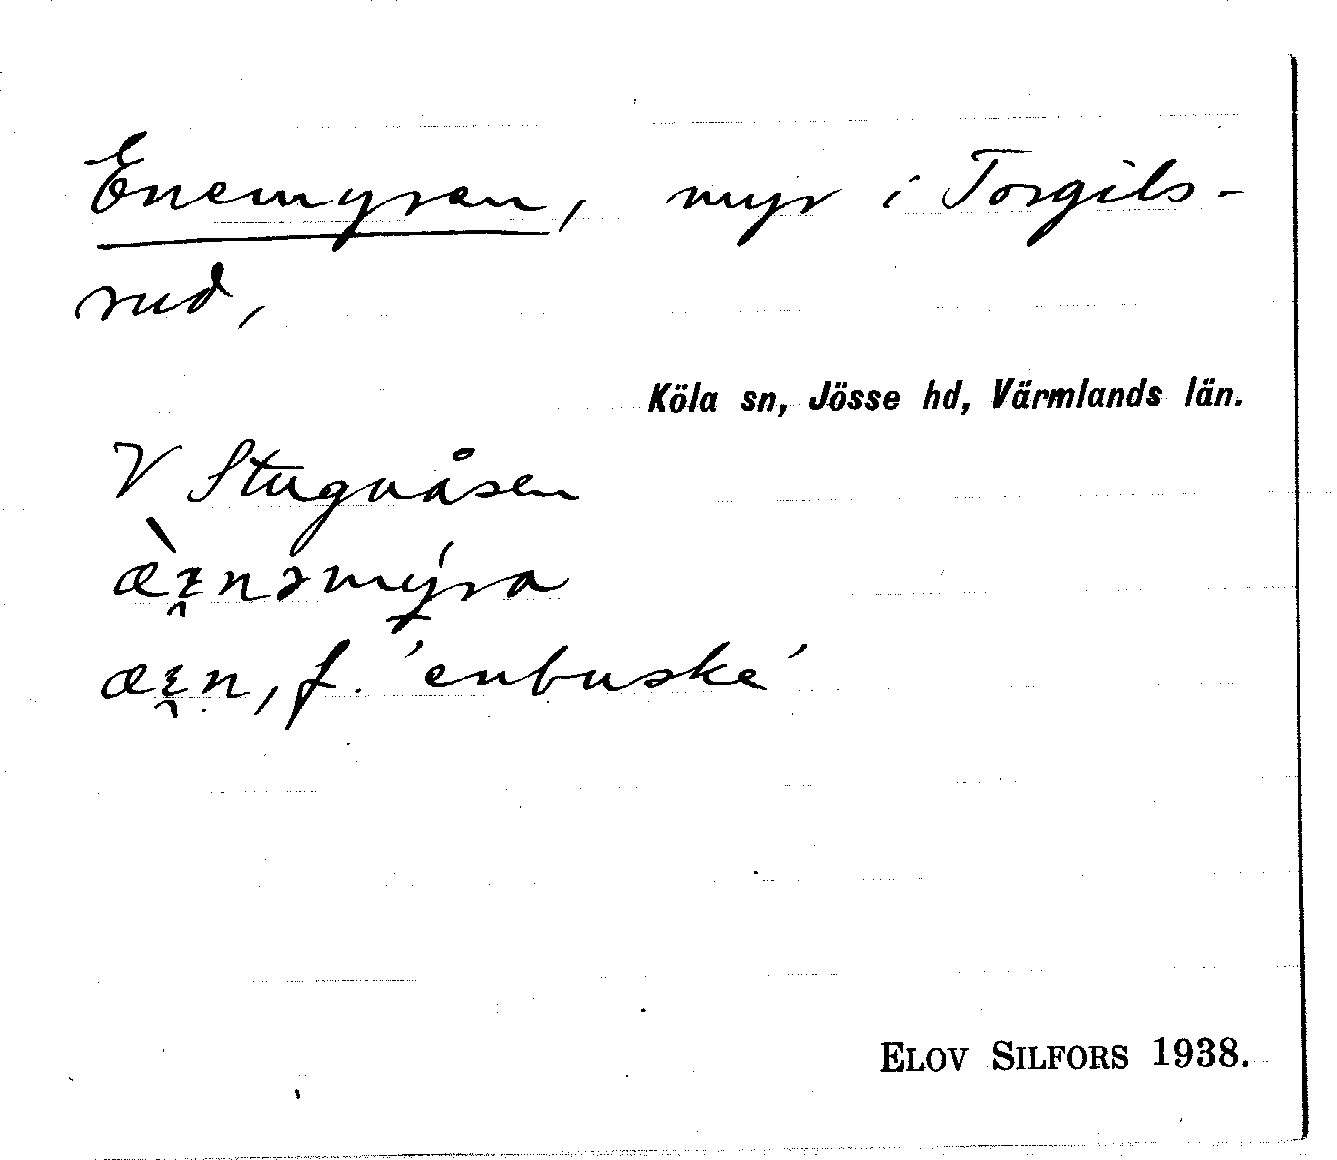 Enemyren, myr i Torgils-
rud,
Köla sn, Jösse hd, Värmlands län.
V Stuguåsen
f. 'enbuske'
ELOV SILFORS 1938.